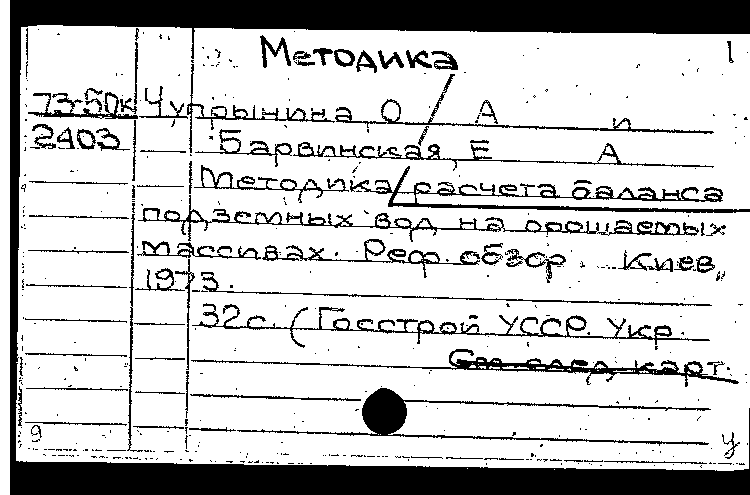 Методика 1
73-50к Чупрынина, О А и
2403 Барвинская, Е А
Методика/расчета баланса
подземных вод на орошаемых
массивах. Реф. обзор. Киев,
1973.
32с. (Госстрой УССР. Укр.
См. след. карт.
9 у